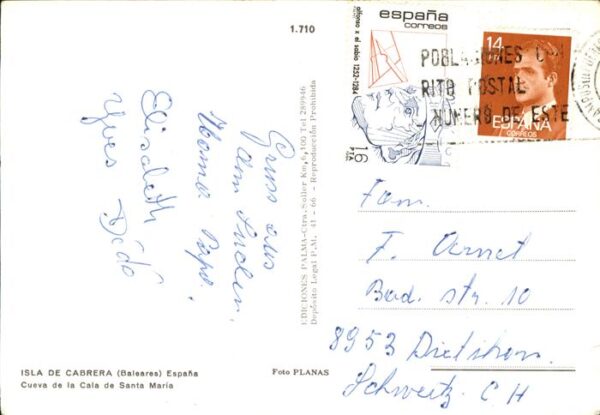 1.710
Gruss aus
dem Süden.
Mama Papa.
Elisabeth
Yves Dédo
EDICIONES PALMA-Ctra. Soller Km, 6,100 Tel 289946
Depósito Legal P.M. 41 - 66 - Reproducción Prohibida
ISLA DE CABRERA (Baleares) España
Cueva de la Cala de Santa María
Foto PLANAS
españa
correos
alfonso x el sabio 1252-1284
16
PTA
14
PTA
ESPAÑA
CORREOS
POBLACIONES
RITO POSTAL
NUMERO DE ESTE
Fam.
F. Vernet
Bad. str. 10
8953 Dietikon
Schweiz C H